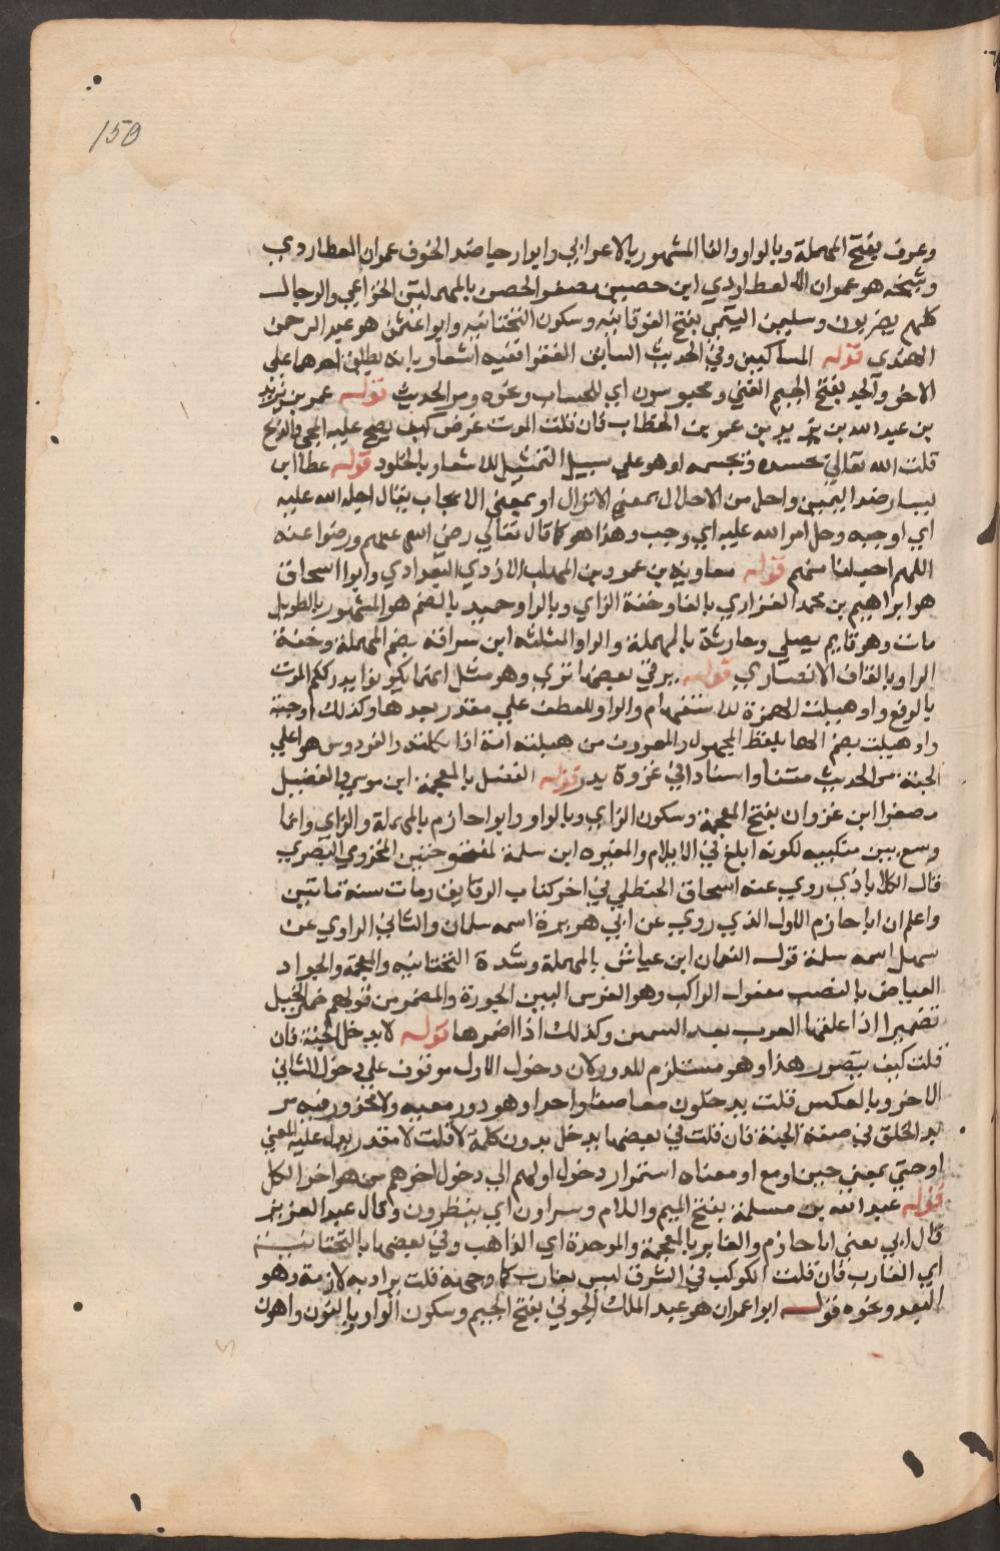 150
وعوف بفتح المهملة وبالواو والفا المشهور بالاعرابي وابو ارجا ضد الخوف عمران العطاردي
وشيخه هو عمران العطاردي ابن حصين مصغر الحصن بالمهملتين الخزاعي والرجال
كلهم بصريون وسليمن التيمي بفتح الفوقانيه وسكون التحتانيه وابو اعثمن هو عبد الرحمن
الهندي قوله المساكيين وفي الحديث السابق الفقرا ففيه اشعار بانه يطلق احدهما علي
الاخر والجد بفتح الجيم الغني ومحبوسون اي للحساب ونحوه ومر الحديث قوله عمر بن محمد بن زيد
بن عبد الله بن عمر بن الخطاب فان قلت الموت عرض كيف يصح عليه المجي والذبح
قلت الله تعالي يجسده ويجسمه او هو علي سبيل التمثيل للاشعار بالخلود قوله عطا ابن
يسار ضد اليمين واحل من الاحلال بمعني الانزال او بمعني الايجاب يقال احله الله عليه
اي اوجبه وحل امر الله عليه اي وجب وهذا هو كما قال تعالي رضي الله عنهم ورضوا عنه
اللهم اجعلنا منهم قوله معاوية بن عمرو بن المهلب الازدي البغدادي وابوا اسحاق
هو ابراهيم بن محمد الفزاري بالفا وخفة الزاي وبالرا وحميد بالضم هو المشهور بالطويل
مات وهو قايم يصلي وحارثة بالمهملة والرا والمثلثه ابن سراقة بضم المهملة وخفة
الرا وبالقاف الانصاري قوله يرفي بعضها تري وهو مثل اينما تكونوا يدرككم الموت
بالرفع واوهبلت الهمزة للاستفهام والواو للعطف علي مقدر بعدها وكذلك اوجنة
واوهبلت بضم الها بلفظ المجهول والمعروف من هبلته امه اذا ثكلته والفردوس هو اعلي
الجنة مر الحديث متنا واسنادا في غزوة بدر قوله الفضل بالمعجمة ابن موسي والفضيل
مصغرا ابن غزوان بفتح المعجمة وسكون الزاي وبالواو وابوا حازم بالمهملة والزاي وانما
وسع بين منكبيه لكونه ابلغ في الايلام والمغيره ابن سلمة المخزومي البصري
قال الكلاباذي روي عنه اسحاق الحنظلي في اخر كتاب الرقايق ومات سنة مائتين
واعلم ان ابا حازم الاول الذي روي عن ابي هريرة اسمه سلمان والثاني الراوي عن
سهل اسمه سلمة قوله النعمان ابن عياش بالمهملة وشدة التحتانيه والمعجمة والجواد
بالنصب مفعول الراكب وهو الفرس البين الجودة والمضمر من قولهم ضمر الخيل
تضميرا اذا علفها القوت بعد السمن وكذلك اذا اضمرها قوله لا يدخل الجنة فان
قلت كيف يتصور هذا وهو مستلزم للدور لان دخول الاول موقوف علي دخول الثاني
الاخر وبالعكس قلت يدخلون معا صفا واحدا وهو دور معيه ولا محذور فيه مر
بدء الخلق في صفة الجنة فان قلت في بعضها يدخل بدون كلمة لا قلت لا مقدر يدل عليه المعني
او حتي بمعني حين او مع او معناه استمرار دخول اولهم الي دخول اخرهم من هو اخر الكل
قوله عبد الله بن مسلمة بفتح الميم واللام ويتراون اي ينظرون وقال عبد العزيز
قال ابي يعني ابا حازم والغابر بالمعجمة والموحدة اي الذاهب وفي بعضها بالتحتانية
اي الغارب فان قلت الكوكب في الشرق ليس بغارب فما وجهه قلت يراد به لازمه وهو
البعد ونحوه قوله ابوا عمران هو عبد الملك الجوني بفتح الجيم وسكون الواو وبالنون واهون